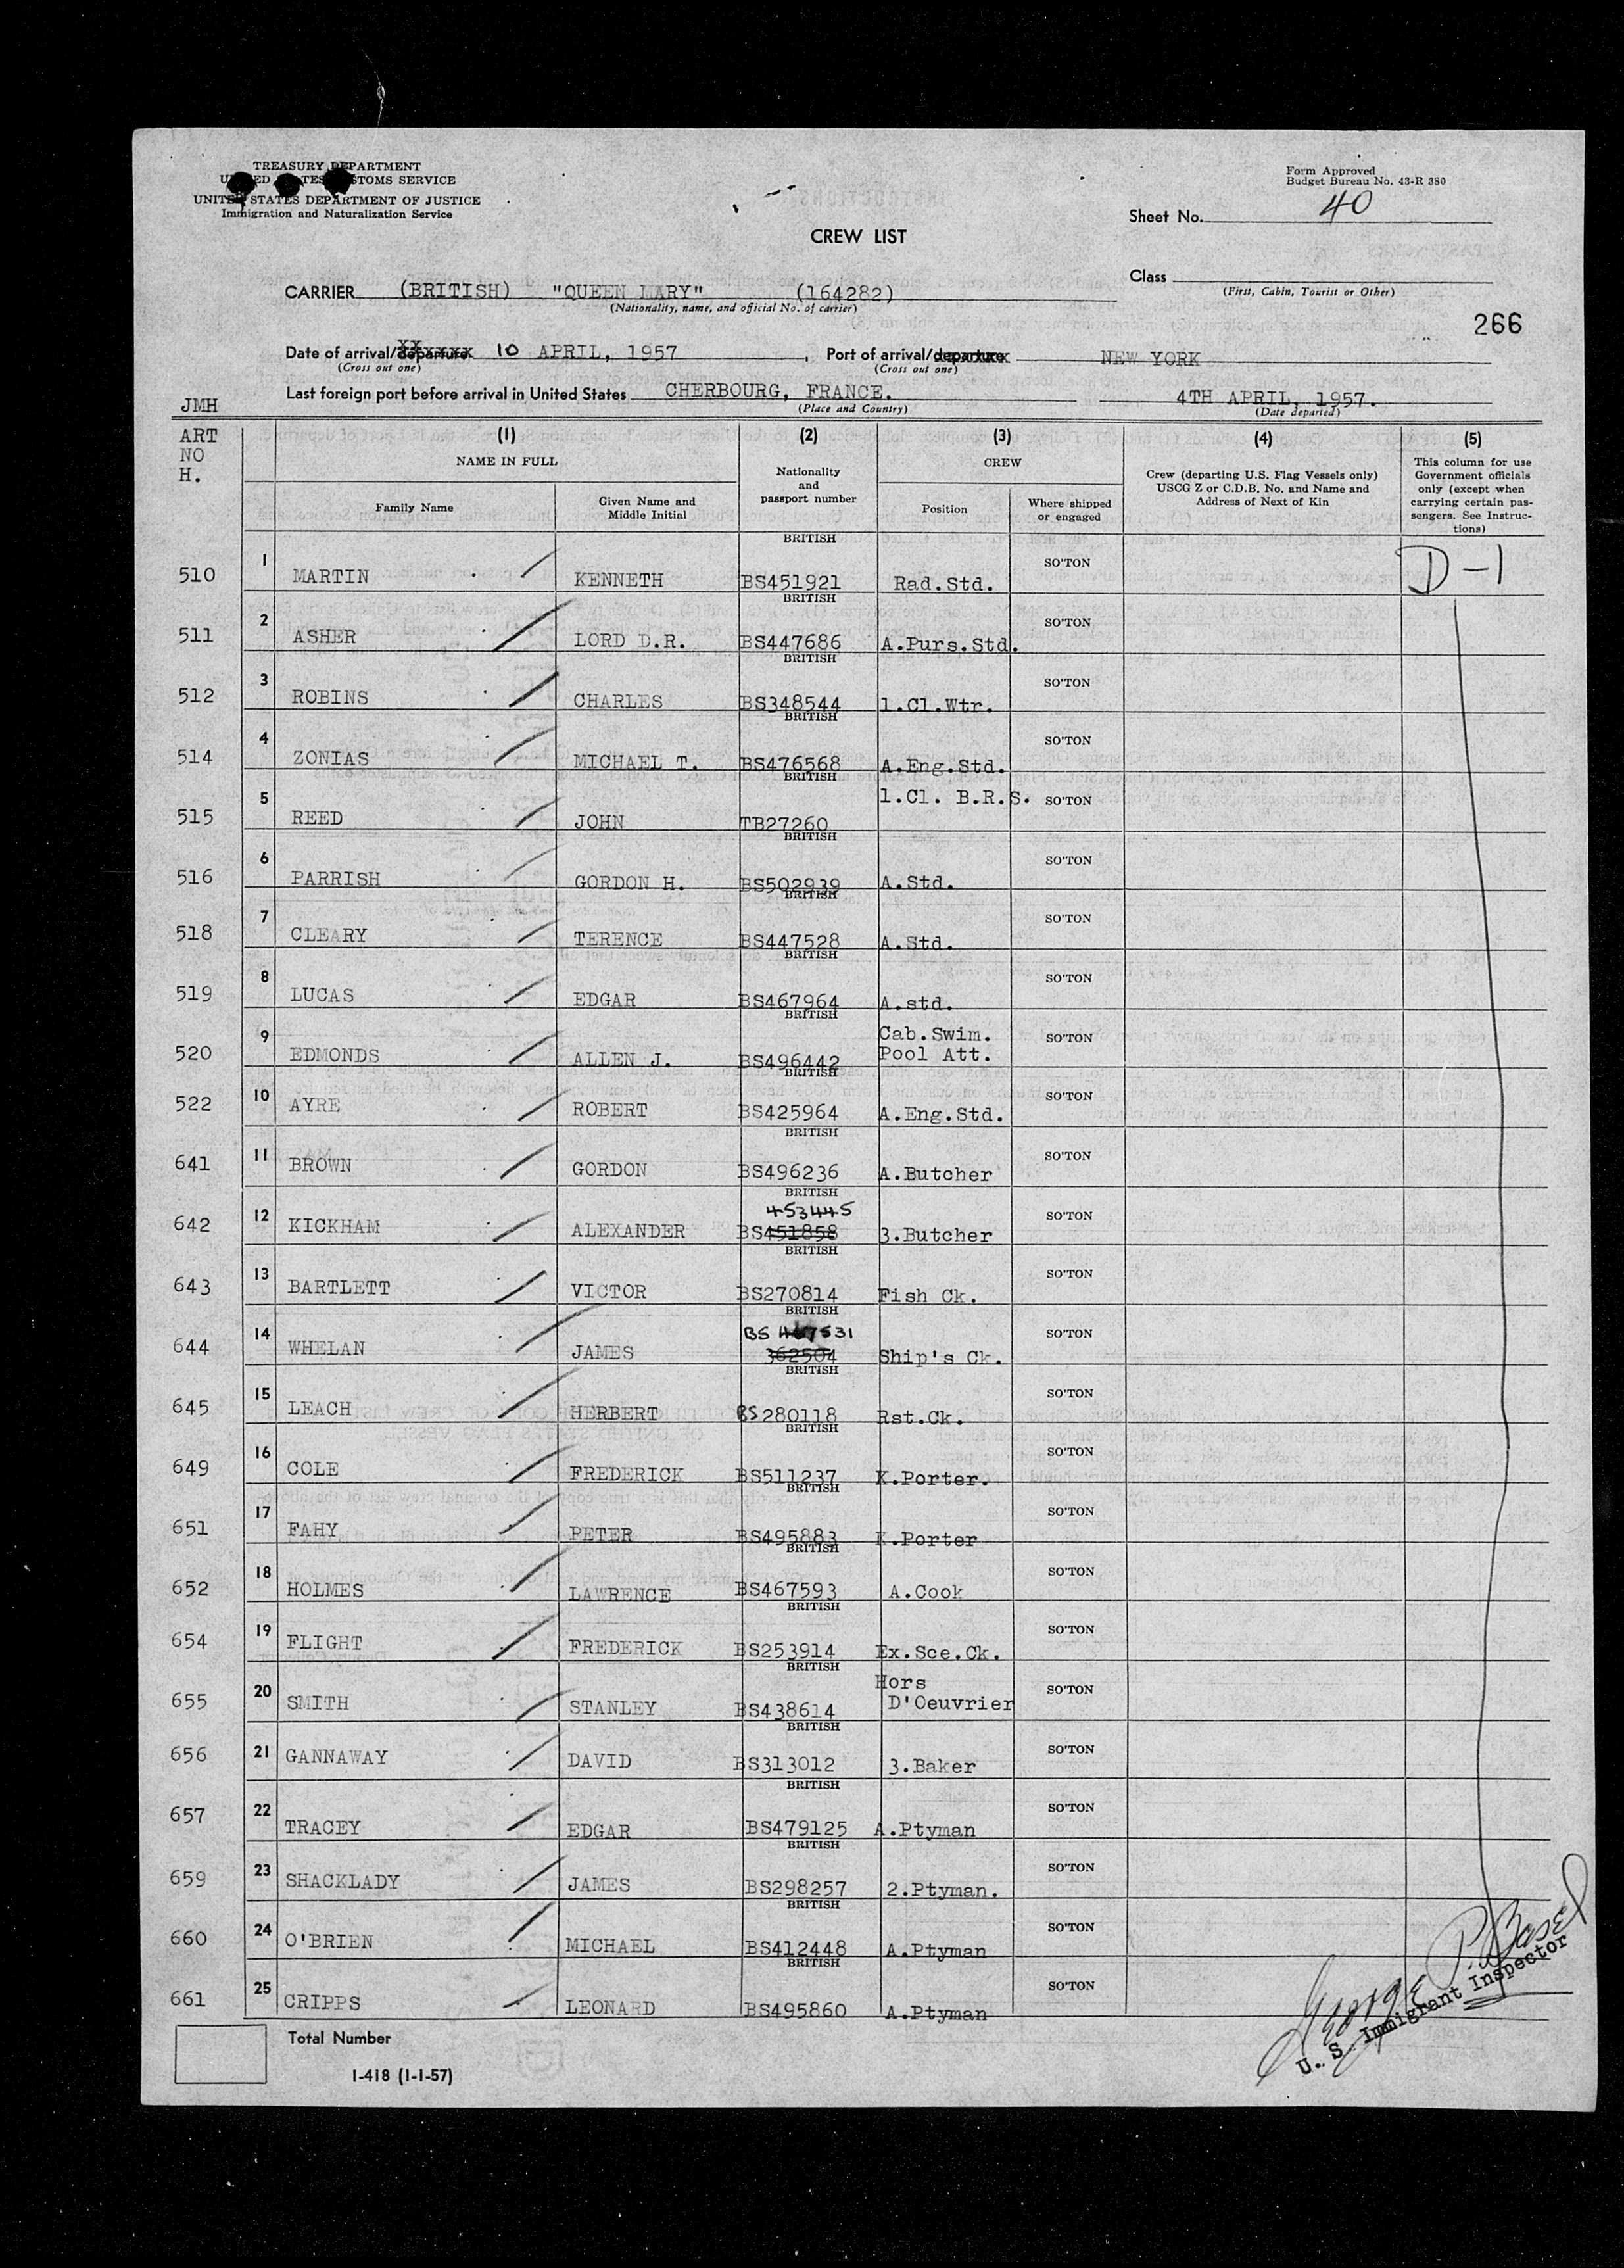 TREASURY DEPARTMENT
UNITED STATES CUSTOMS SERVICE
UNITED STATES DEPARTMENT OF JUSTICE
Immigration and Naturalization Service
Form Approved
Budget Bureau No. 43-R 380
Sheet No. 40
CREW LIST
Class
(First, Cabin, Tourist or Other)
CARRIER (BRITISH) "QUEEN MARY" (164282)
(Nationality, name, and official No. of carrier)
266
Date of arrival/departure 10 APRIL, 1957, Port of arrival/departure NEW YORK
(Cross out one) (Cross out one)
Last foreign port before arrival in United States CHERBOURG, FRANCE. 4TH APRIL, 1957.
(Place and Country) (Date departed)
JMH
ART
NO
H.
(1) (2) (3) (4) (5)
NAME IN FULL
Family Name
Given Name and
Middle Initial
Nationality
and
passport number
CREW
Position
Where shipped
or engaged
Crew (departing U.S. Flag Vessels only)
USCG Z or C.D.B. No. and Name and
Address of Next of Kin
This column for use
Government officials
only (except when
carrying certain pas-
sengers. See Instruc-
tions)
510 1 MARTIN KENNETH BRITISH BS451921 Rad.Std. SO'TON D-1
511 2 ASHER LORD D.R. BRITISH BS447686 A.Purs.Std. SO'TON
512 3 ROBINS CHARLES BRITISH BS348544 1.Cl.Wtr. SO'TON
514 4 ZONIAS MICHAEL T. BRITISH BS476568 A.Eng.Std. SO'TON
515 5 REED JOHN BRITISH TB27260 1.Cl. B.R.S. SO'TON
516 6 PARRISH GORDON H. BRITISH BS502939 A.Std. SO'TON
518 7 CLEARY TERENCE BRITISH BS447528 A.Std. SO'TON
519 8 LUCAS EDGAR BRITISH BS467964 A.std. SO'TON
520 9 EDMONDS ALLEN J. BRITISH BS496442 Cab.Swim. Pool Att. SO'TON
522 10 AYRE ROBERT BRITISH BS425964 A.Eng.Std. SO'TON
641 11 BROWN GORDON BRITISH BS496236 A.Butcher SO'TON
642 12 KICKHAM ALEXANDER BRITISH 453445 BS451858 3.Butcher SO'TON
643 13 BARTLETT VICTOR BRITISH BS270814 Fish Ck. SO'TON
644 14 WHELAN JAMES BRITISH BS 467531 362504 Ship's Ck. SO'TON
645 15 LEACH HERBERT BRITISH BS280118 Rst.Ck. SO'TON
649 16 COLE FREDERICK BRITISH BS511237 K.Porter. SO'TON
651 17 FAHY PETER BRITISH BS495883 K.Porter SO'TON
652 18 HOLMES LAWRENCE BRITISH BS467593 A.Cook SO'TON
654 19 FLIGHT FREDERICK BRITISH BS253914 Ex.Sce.Ck. SO'TON
655 20 SMITH STANLEY BRITISH BS438614 Hors D'Oeuvrier SO'TON
656 21 GANNAWAY DAVID BRITISH BS313012 3.Baker SO'TON
657 22 TRACEY EDGAR BRITISH BS479125 A.Ptyman SO'TON
659 23 SHACKLADY JAMES BRITISH BS298257 2.Ptyman. SO'TON
660 24 O'BRIEN MICHAEL BRITISH BS412448 A.Ptyman SO'TON
661 25 CRIPPS LEONARD BRITISH BS495860 A.Ptyman SO'TON
George P. Basel
U. S. Immigrant Inspector
Total Number
I-418 (1-1-57)